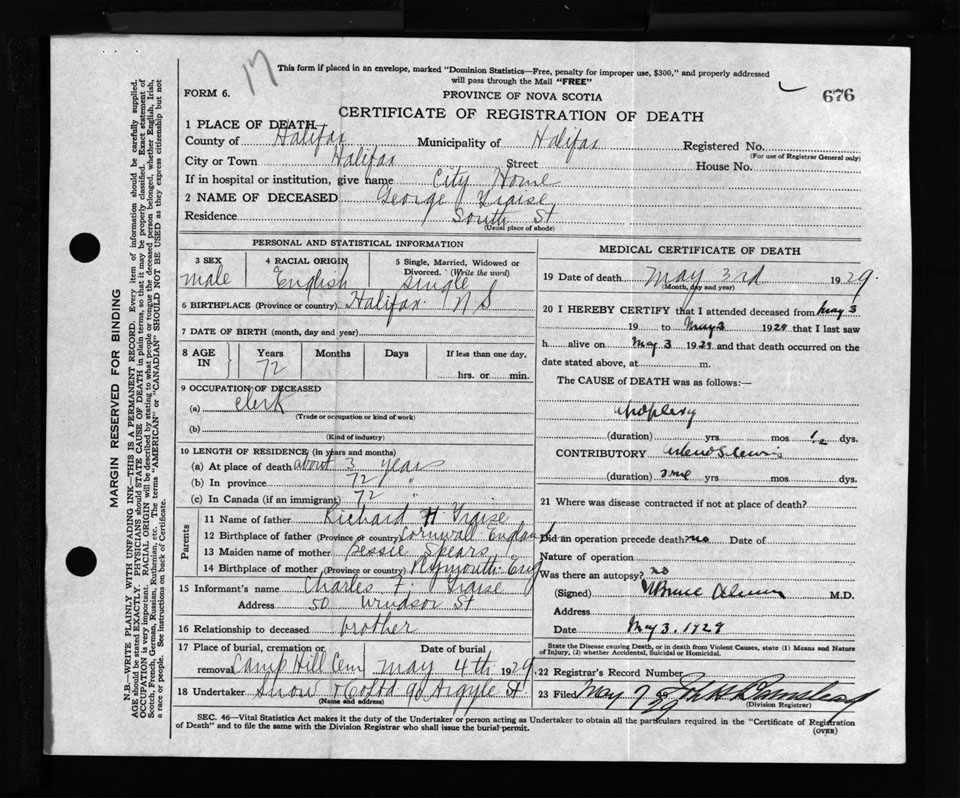 17
This form if placed in an envelope, marked "Dominion Statistics—Free, penalty for improper use, $300," and properly addressed
will pass through the Mail "FREE"
FORM 6.
PROVINCE OF NOVA SCOTIA
676
CERTIFICATE OF REGISTRATION OF DEATH
1 PLACE OF DEATH
County of Halifax Municipality of Halifax Registered No.
(For use of Registrar General only)
City or Town Halifax Street House No.
If in hospital or institution, give name City Home
2 NAME OF DECEASED George Traise
Residence South St
(Usual place of abode)
PERSONAL AND STATISTICAL INFORMATION
3 SEX 4 RACIAL ORIGIN 5 Single, Married, Widowed or
Divorced. (Write the word)
male English Single
6 BIRTHPLACE (Province or country) Halifax N S
7 DATE OF BIRTH (month, day and year)
8 AGE IN Years Months Days If less than one day,
72 hrs. or min.
9 OCCUPATION OF DECEASED
(a) Clerk
(Trade or occupation or kind of work)
(b)
(Kind of industry)
10 LENGTH OF RESIDENCE (in years and months)
(a) At place of death about 3 years
(b) In province 72 "
(c) In Canada (if an immigrant) 72 "
Parents
11 Name of father Richard H Traise
12 Birthplace of father (Province or country) Cornwall England
13 Maiden name of mother Bessie Spears
14 Birthplace of mother (Province or country) Plymouth Eng
15 Informant's name Charles F Traise
Address 50 Windsor St
16 Relationship to deceased brother
17 Place of burial, cremation or Date of burial
removal Camp Hill Cem May 4th 1929
18 Undertaker Snow & Co Ltd 90 Argyle St
(Name and address)
MEDICAL CERTIFICATE OF DEATH
19 Date of death May 3rd 1929.
(Month, day and year)
20 I HEREBY CERTIFY that I attended deceased from May 3
19 to May 3 1929 that I last saw
h alive on May 3 1929 and that death occurred on the
date stated above, at m.
The CAUSE of DEATH was as follows:—
(duration) yrs mos ½ dys.
CONTRIBUTORY
(duration) yrs mos dys.
21 Where was disease contracted if not at place of death?
Did an operation precede death? no Date of
Nature of operation
Was there an autopsy? no
(Signed) M.D.
Address
Date May 3, 1929
State the Disease causing Death, or in death from Violent Causes, state (1) Means and Nature
of Injury, (2) whether Accidental, Suicidal or Homicidal.
22 Registrar's Record Number
23 Filed May 7 29
(Division Registrar)
SEC. 46—Vital Statistics Act makes it the duty of the Undertaker or person acting as Undertaker to obtain all the particulars required in the "Certificate of Registration
of Death" and to file the same with the Division Registrar who shall issue the burial permit.
(OVER)
MARGIN RESERVED FOR BINDING
N.B.—WRITE PLAINLY WITH UNFADING INK—THIS IS A PERMANENT RECORD. Every item of information should be carefully supplied.
AGE should be stated EXACTLY. PHYSICIANS should STATE CAUSE OF DEATH in plain terms, so that it may be properly classified. Exact statement of
OCCUPATION is very important. RACIAL ORIGIN will be described by stating to what people or tongue the deceased person belonged, whether English, Irish,
Scotch, French, German, Russian, Ruthenian, etc. The terms "AMERICAN" or "CANADIAN" SHOULD NOT BE USED as they express citizenship but not
a race or people. See instructions on back of Certificate.